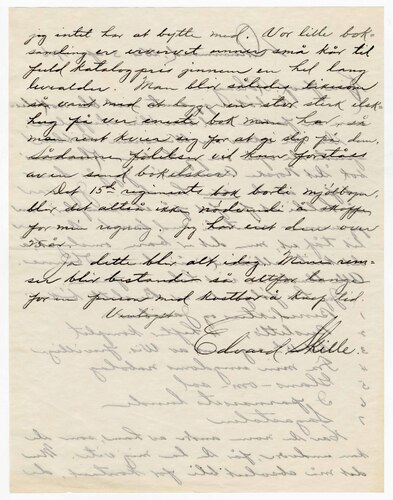 jeg intet har at bytte med. Vor lille bok-
samling er erhvervet under små kår til
fuld katalogpris gjennem en hel lang
levealder. Man blir således likesom
så vant med at lægge en stor sterk elsk-
hug på ver eneste bok man har, så
man rent kvier sig for at gi slip på den.
Sådanne følelser vil kun forståes
av en sand bokelsker.
Det 15th regiments bok borti
blir det altså ikke nødvendig å skaffe
for min regning. Jeg har eiet den over
25 år.
Ja dette blir alt idag. Mine
blir bestandig så altfor lange
for en person med kostbar å knap tid.
Venligst
Edvard Skille.